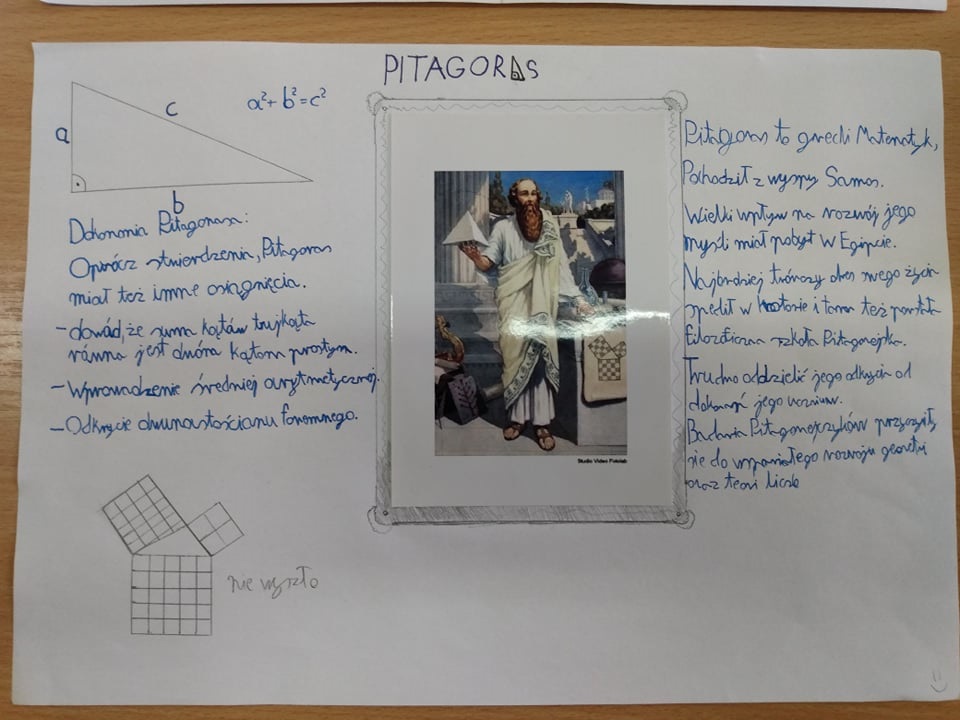 PITAGORAS
a
c
b
a²+b²=c²
Dokonania Pitagorasa:
Oprócz stwierdzenia, Pitagoras
miał też inne osiągnięcia.
-dowód, że suma kątów trujkąta
równa jest dwóm kątom prostym.
-Wprowadzenie średniej arytmetycznej.
-Odkrycie dwunastościanu foremnego.
nie wyszło
Studio Video Fotolab
Pitagoras to grecki Matematyk,
Pochodził z wyspy Samos.
Wielki wpływ na rozwój jego
myśli miał pobyt w Egipcie.
Najbardziej twórczy okres swego życia
spędził w i tam też powstała
filozoficzna szkoła Pitagorejska.
Trudno oddzielić jego odkrycia od
dokonań jego uczniów.
Badania Pitagorejczyków przyczyniły
się do wspaniałego rozwoju geometri
oraz teori liczb